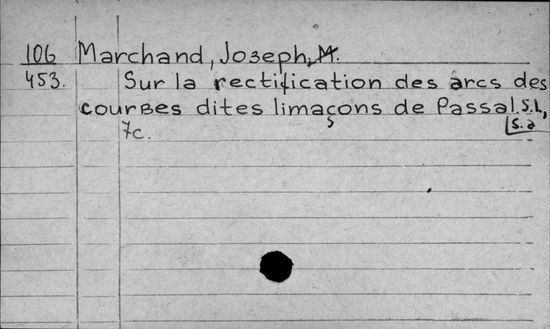 106 Marchand, Joseph, M.
453. Sur la rectification des arcs des
courbes dites limaçons de Passal S.l,
s.a
7c.